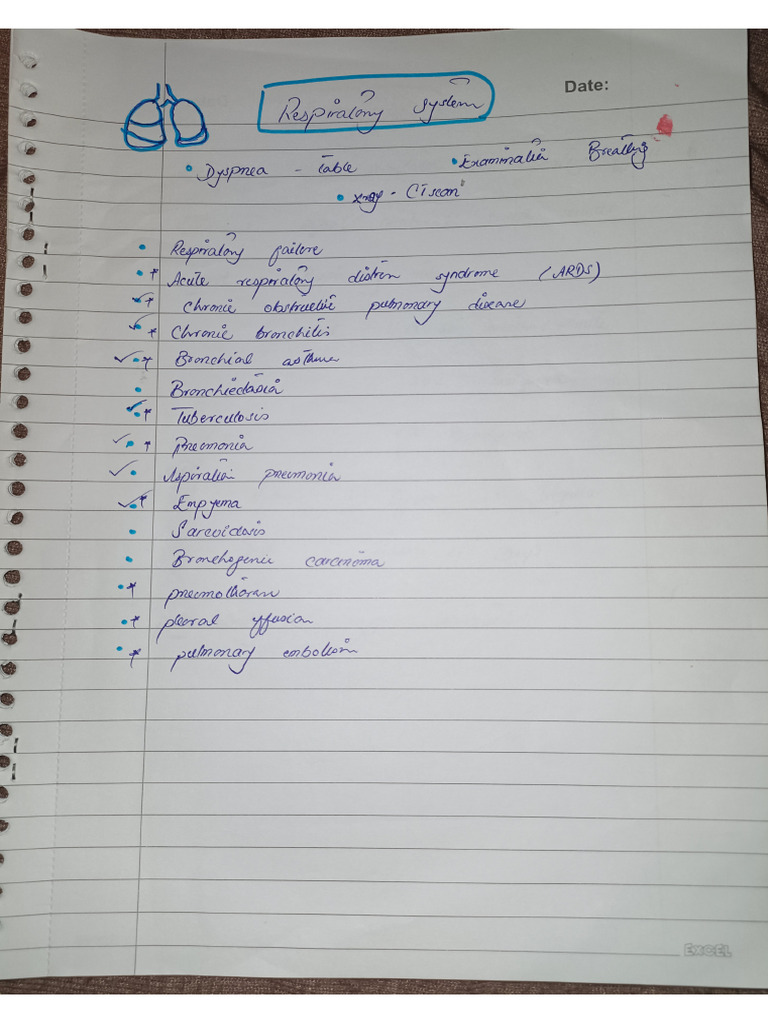 Date:
Respiratory system
• Dyspnea - table • Examination Breathing
• xray - CT scan
• Respiratory failure
• * Acute respiratory distress syndrome (ARDS)
✓ • * Chronic obstructive pulmonary disease
✓ • * Chronic bronchitis
✓ • * Bronchial asthma
• Bronchiectasia
✓ • * Tuberculosis
✓ • * Pneumonia
✓ • Aspiration pneumonia
✓ • * Empyema
• Sarcoidosis
• Bronchogenic carcinoma
• * pneumothorax
• * pleural effusion
• * pulmonary embolism
EXCEL